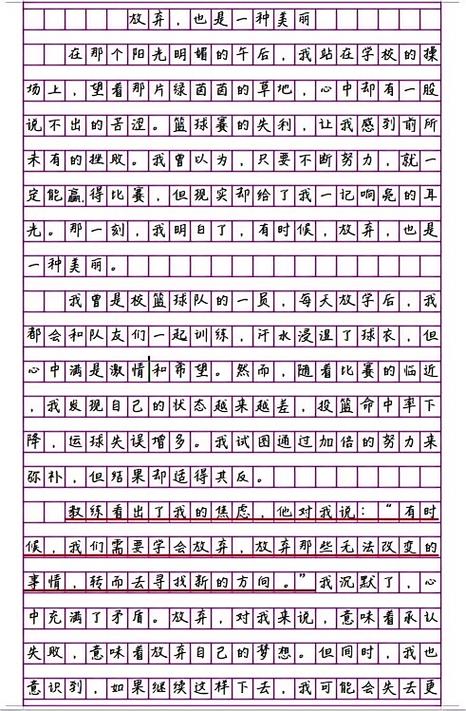 放弃，也是一种美丽
在那个阳光明媚的午后，我站在学校的操
场上，望着那片绿茵茵的草地，心中却有一股
说不出的苦涩。篮球赛的失利，让我感到前所
未有的挫败。我曾以为，只要不断努力，就一
定能赢得比赛，但现实却给了我一记响亮的耳
光。那一刻，我明白了，有时候，放弃，也是
一种美丽。
我曾是校篮球队的一员，每天放学后，我
都会和队友们一起训练，汗水浸湿了球衣，但
心中满是激情和希望。然而，随着比赛的临近
，我发现自己的状态越来越差，投篮命中率下
降，运球失误增多。我试图通过加倍的努力来
弥补，但结果却适得其反。
教练看出了我的焦虑，他对我说：“有时
候，我们需要学会放弃，放弃那些无法改变的
事情，转而去寻找新的方向。”我沉默了，心
中充满了矛盾。放弃，对我来说，意味着承认
失败，意味着放弃自己的梦想。但同时，我也
意识到，如果继续这样下去，我可能会失去更